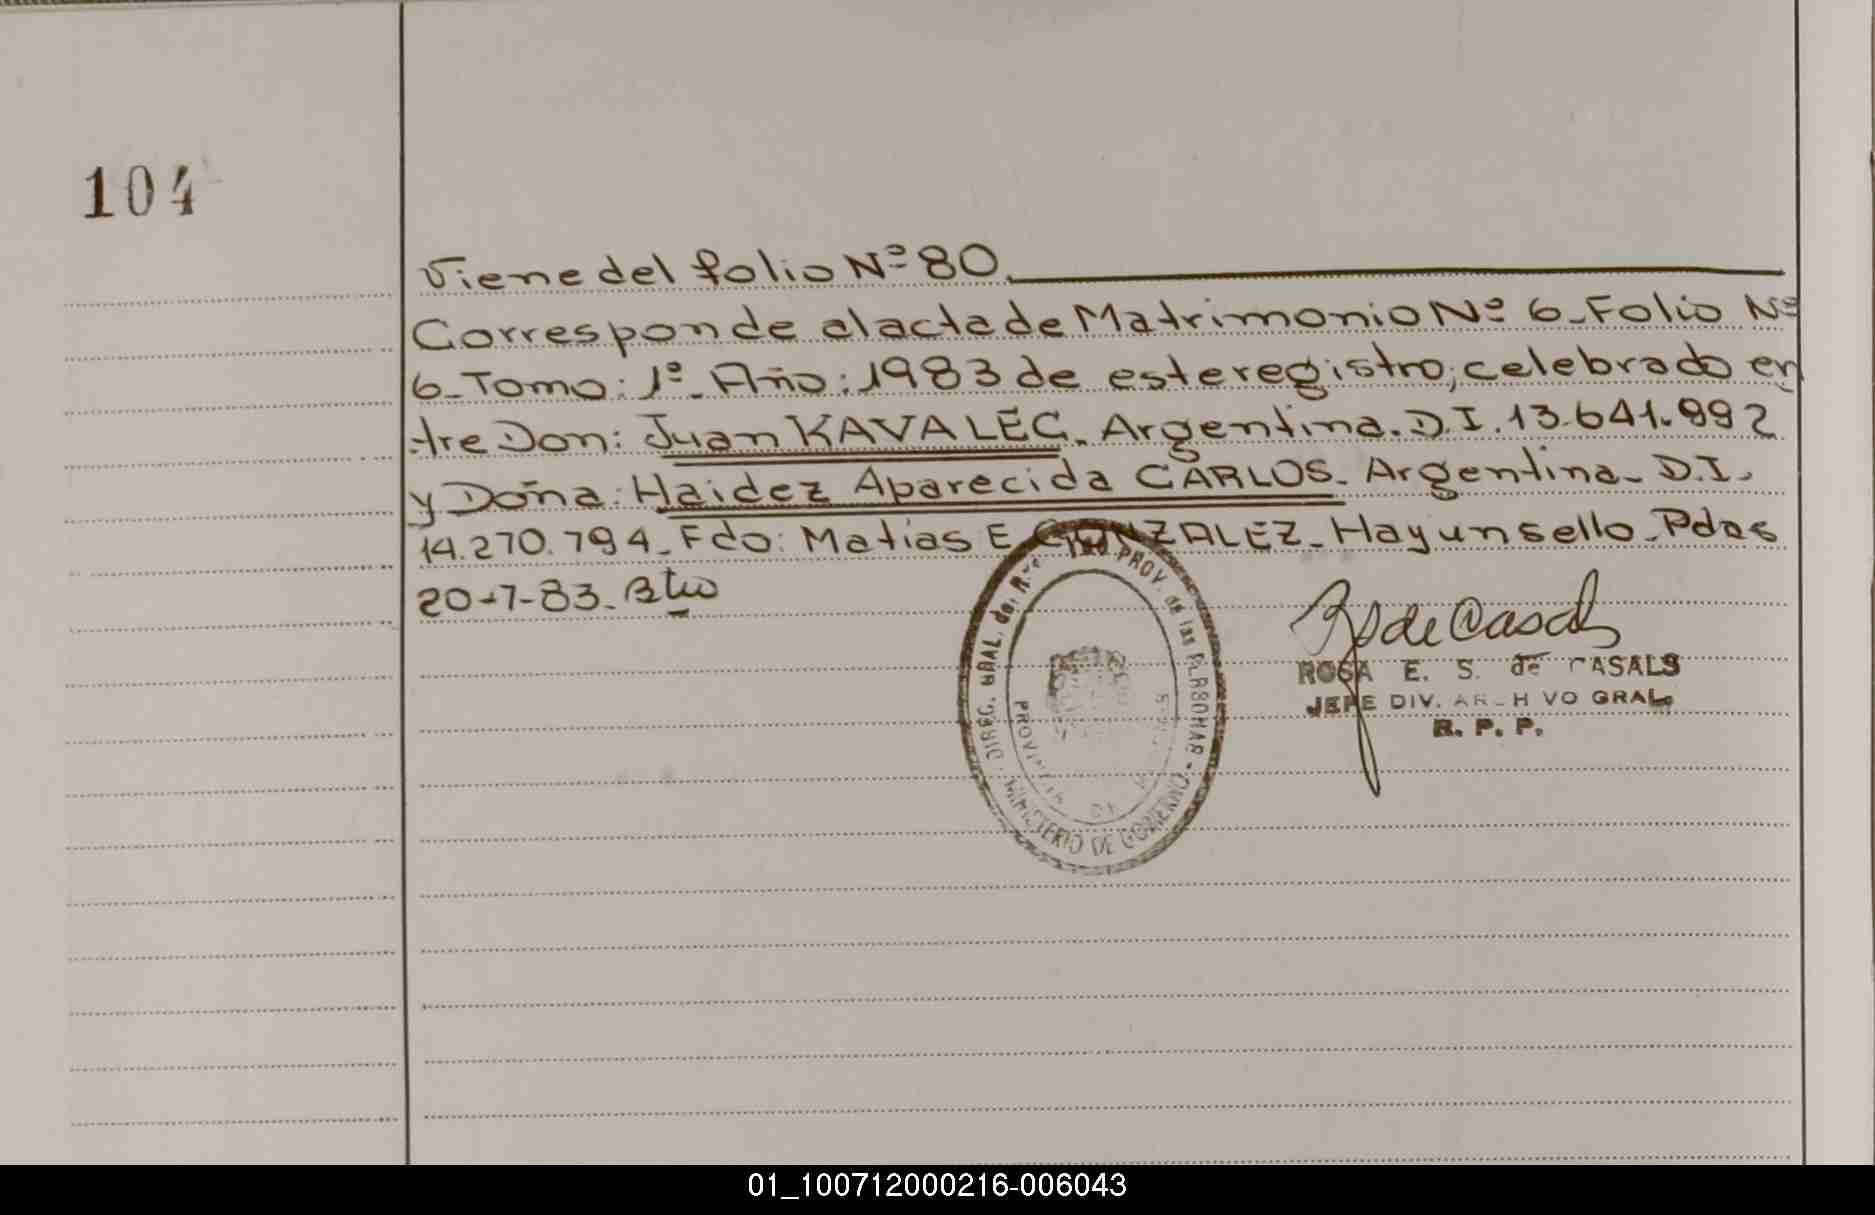 104
Viene del folio Nº 80.
Corresponde al acta de Matrimonio Nº 6_ Folio Nº
6_ Tomo: 1º_ Año: 1983 de este registro; celebrado en
tre Don: Juan KAVALEC_ Argentina. D.I. 13.641.992
y Doña: Haidez Aparecida CARLOS_ Argentina_ D.I.
14.270.794_ Fdo: Matías E GONZALEZ_ Hay un sello_ Pdas
20-7-83_
DIREC. GRAL. del PROV. de las PERSONAS - MINISTERIO DE GOBIERNO
ROSA E. S. de CASALS
JEFE DIV. ARCHIVO GRAL.
R. P. P.
01_100712000216-006043